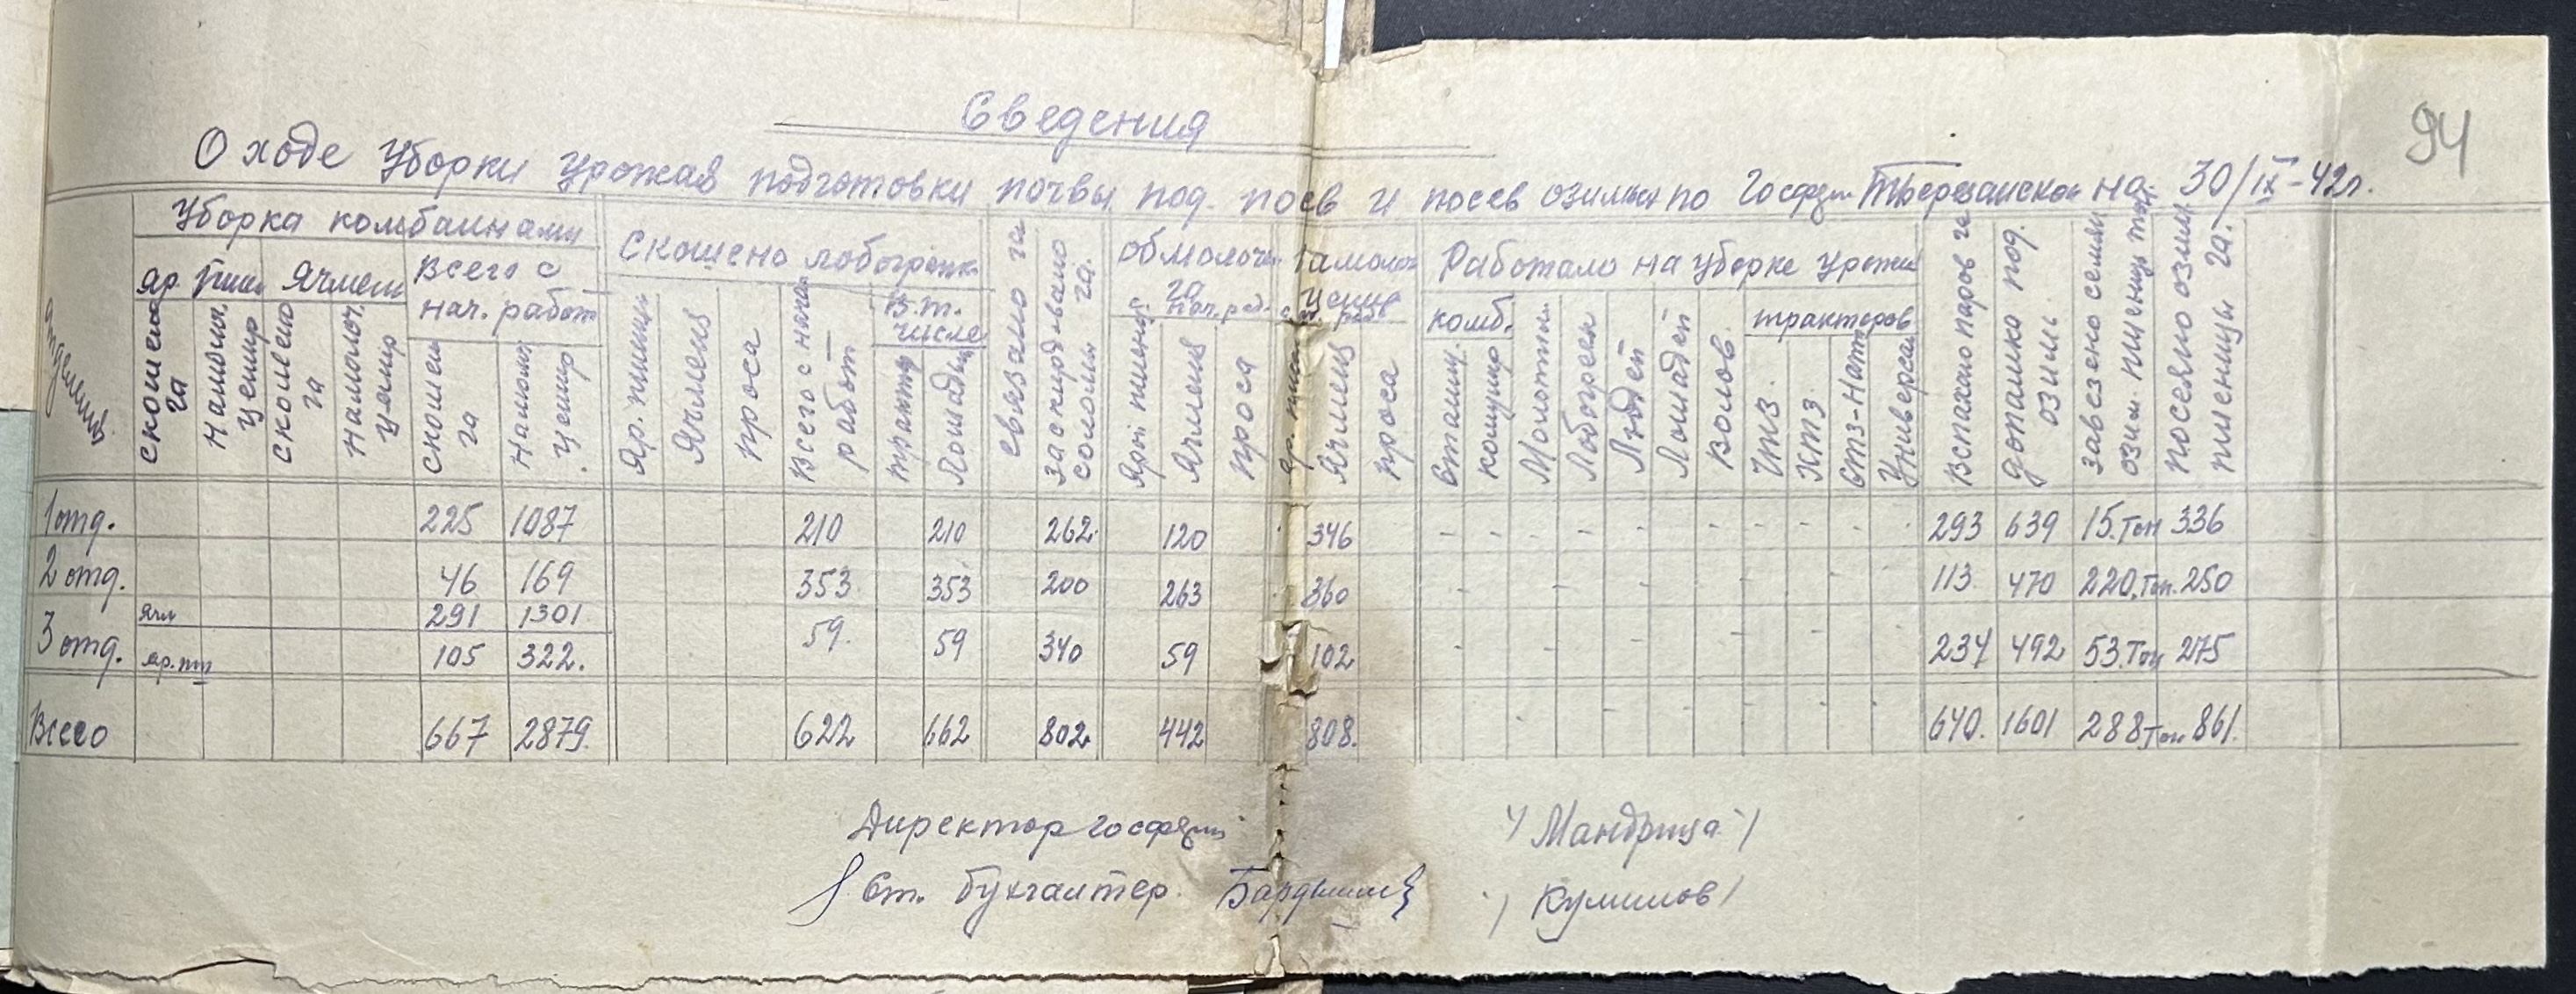 94
Сведения
О ходе уборки урожая подготовки почвы под посев и посев озимых по Госфрм Тверезанской на 30/IX-42г.
отделения
Уборка комбайнами
Яр. пшен Ячмень Всего с нач. работ
скошено га
намолоч. центнр
скошено га
намолоч. центнр
скошен га
намолоч центнр.
Скошено лобогрейк
Яр. пшениц
Ячменя
проса
Всего с нача работ
в.т. числе
трактор
лошадьми
связано га
заскирдовано соломы га.
обмолоч. га нач. раб.
Ярой пшениц
Ячменя
проса
намолоч
яр. пшен
Ячменя
проса
Работало на уборке урожая
комб.
сталин.
комунар
Молотил.
Лобогреек
Людей
Лошадей
Волов.
тракторов
ЧТЗ.
ХТЗ.
СТЗ-Нати
Универсал
Вспахано паров га
под. озимь
завезено семян озим. пшениц тон.
посеяно озим. пшеницы га.
1 отд. 225 1087 210 210 262 120 346 - - - - - - - - - - 293 639 15. Тон 336
2 отд. 46 169 353 353 200 263 360 - - - - - - - 113. 470 220. Тон. 250
3 отд. Ячм 291 1301 59. 59 340 59 102 - - - - - - - 234 492 53. Тон 275
яр. пш 105 322.
Всего 667 2879. 622 662 802 442 808. - - - - - - - - - 640. 1601 288 Тон 861.
Директор госфрм / Мандрица /
Ст. бухгалтер. / Кулишов /